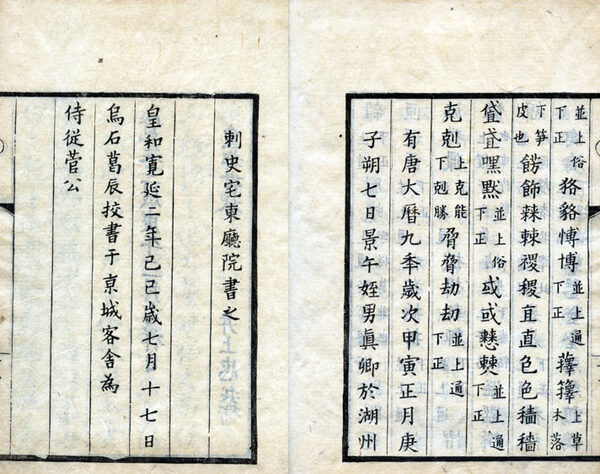 並上俗下正 狢貉愽博 並上通下正 蘀籜 上草木落
下笋皮也 餝飾棘稷稷直色色穡穡
嘿默 並上俗下正 或 並上通下正
克剋 上克能下剋勝 脅脅刧劫 並上通下正
有唐大曆九秊歲次甲寅正月庚
子朔七日景午姪男眞卿於湖州
刺史宅東廳院書之
皇和寛延二年己巳歳七月十七日
烏石葛辰挍書于京城客舍為
侍從菅公